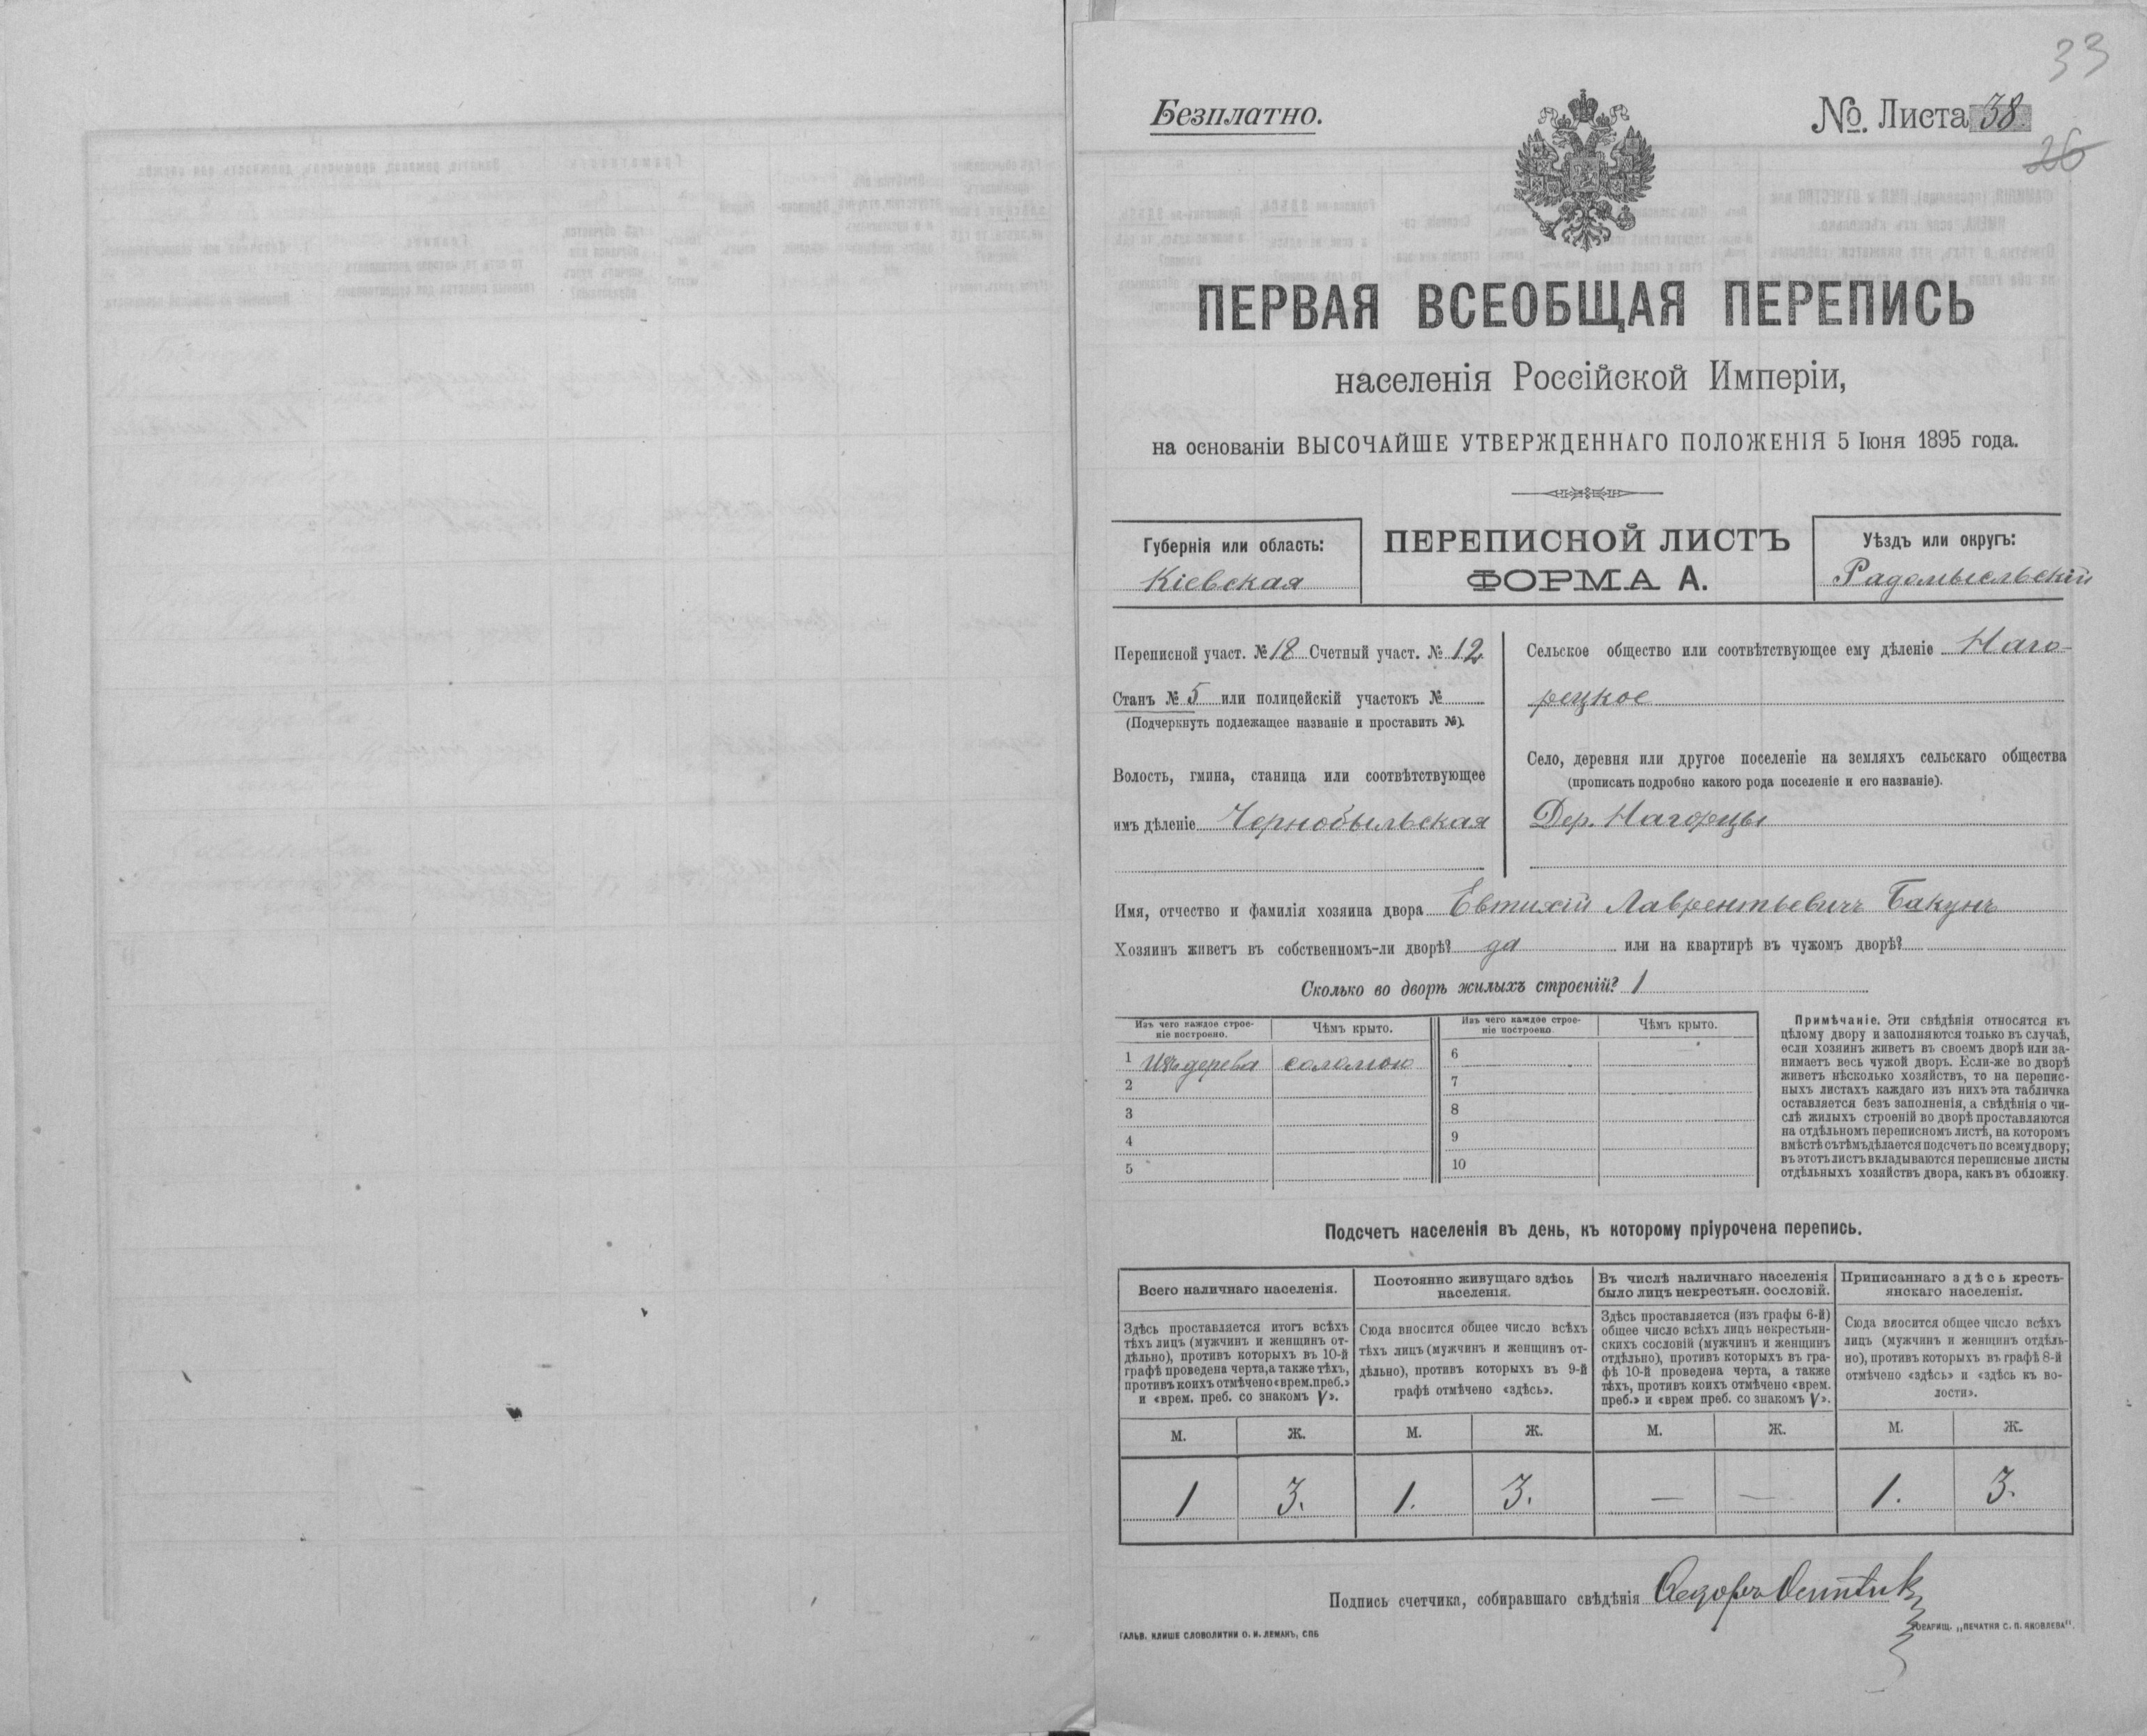 33
Безплатно.
№. Листа 38.
26
ПЕРВАЯ ВСЕОБЩАЯ ПЕРЕПИСЬ
населенія Россійской Имперіи,
на основаніи ВЫСОЧАЙШЕ УТВЕРЖДЕННАГО ПОЛОЖЕНІЯ 5 Іюня 1895 года.
Губернія или область:
Кіевская
ПЕРЕПИСНОЙ ЛИСТЪ
ФОРМА А.
Уѣздъ или округъ:
Радомысльскій
Переписной участ. № 18 Счетный участ. № 12
Станъ № 5 или полицейскій участокъ №
(Подчеркнуть подлежащее названіе и проставить №).
Волость, гмина, станица или соотвѣтствующее
имъ дѣленіе Чернобыльская
Сельское общество или соотвѣтствующее ему дѣленіе Наго-
рецкое
Село, деревня или другое поселеніе на земляхъ сельскаго общества
(прописать подробно какого рода поселеніе и его названіе).
Дер. Нагорцы
Имя, отчество и фамилія хозяина двора Евтихій Лаврентьевичъ Бакунъ
Хозяинъ живетъ въ собственномъ-ли дворѣ? да или на квартирѣ въ чужомъ дворѣ?
Сколько во дворѣ жилыхъ строеній? 1
Изъ чего каждое строе-
ніе построено.
Чѣмъ крыто.
Изъ чего каждое строе-
ніе построено.
Чѣмъ крыто.
1 Изъ дерева соломою 6
2 7
3 8
4 9
5 10
Примѣчаніе. Эти свѣдѣнія относятся къ
цѣлому двору и заполняются только въ случаѣ,
если хозяинъ живетъ въ своемъ дворѣ или за-
нимаетъ весь чужой дворъ. Если-же во дворѣ
живетъ нѣсколько хозяйствъ, то на перепис-
ныхъ листахъ каждаго изъ нихъ эта табличка
оставляется безъ заполненія, а свѣдѣнія о чи-
слѣ жилыхъ строеній во дворѣ проставляются
на отдѣльномъ переписномъ листѣ, на которомъ
вмѣстѣ съ тѣмъ дѣлается подсчетъ по всему двору;
въ этотъ листъ вкладываются переписные листы
отдѣльныхъ хозяйствъ двора, какъ въ обложку.
Подсчетъ населенія въ день, къ которому пріурочена перепись.
Всего наличнаго населенія.
Здѣсь проставляется итогъ всѣхъ
тѣхъ лицъ (мужчинъ и женщинъ от-
дѣльно), противъ которыхъ въ 10-й
графѣ проведена черта, а также тѣхъ,
противъ коихъ отмѣчено «врем. преб.»
и «врем. преб. со знакомъ V».
Постоянно живущаго здѣсь
населенія.
Сюда вносится общее число всѣхъ
тѣхъ лицъ (мужчинъ и женщинъ от-
дѣльно), противъ которыхъ въ 9-й
графѣ отмѣчено «здѣсь».
Въ числѣ наличнаго населенія
было лицъ некрестьян. сословій.
Здѣсь проставляется (изъ графы 6-й)
общее число всѣхъ лицъ некрестьян-
скихъ сословій (мужчинъ и женщинъ
отдѣльно), противъ которыхъ въ гра-
фѣ 10-й проведена черта, а также
тѣхъ, противъ коихъ отмѣчено «врем.
преб.» и «врем преб. со знакомъ V».
Приписаннаго здѣсь кресть-
янскаго населенія.
Сюда вносится общее число всѣхъ
лицъ (мужчинъ и женщинъ отдѣль-
но), противъ которыхъ въ графѣ 8-й
отмѣчено «здѣсь» и «здѣсь къ во-
лости».
М. Ж. М. Ж. М. Ж. М. Ж.
1 3. 1. 3. — — 1. 3.
Подпись счетчика, собиравшаго свѣдѣнія Ѳедоръ
ГАЛЬВ. КЛИШЕ СЛОВОЛИТНИ О. И. ЛЕМАНЪ, СПБ
ТОВАРИЩ. „ПЕЧАТНЯ С. П. ЯКОВЛЕВА".